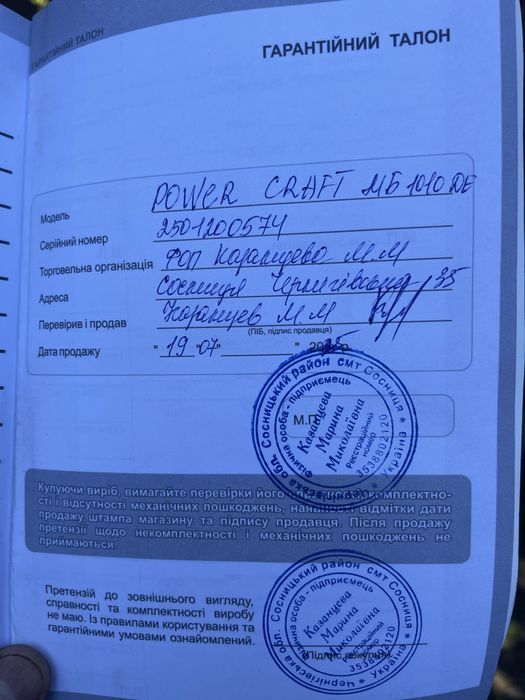 ГАРАНТІЙНИЙ ТАЛОН
ГАРАНТІЙНИЙ ТАЛОН
Модель POWER CRAFT МБ 1010 DE
Серійний номер 2501200574
Торговельна організація ФОП Казанцева М.М
Адреса Сосниця Чернігівська 35
Перевірив і продав Казанцев М М
(ПІБ, підпис продавця)
Дата продажу "19" 07 " 2025р.
М.П.
Чернігівська обл. Сосницький район смт Сосниця * Україна *
Фізична особа - підприємець
Казанцева
Марина
Миколаївна
Реєстраційний
номер
3538802120
Купуючи виріб, вимагайте перевірки його комплектно-
сті і відсутності механічних пошкоджень, наявності відмітки дати
продажу, штампа магазину та підпису продавця. Після продажу
претензії щодо некомплектності і механічних пошкоджень не
приймаються.
Претензій до зовнішнього вигляду,
справності та комплектності виробу
не маю. Із правилами користування та
гарантійними умовами ознайомлений.
(Підпис покупця)
Чернігівська обл. Сосницький район смт Сосниця * Україна *
Фізична особа - підприємець
Казанцева
Марина
Миколаївна
Реєстраційний
номер
3538802120